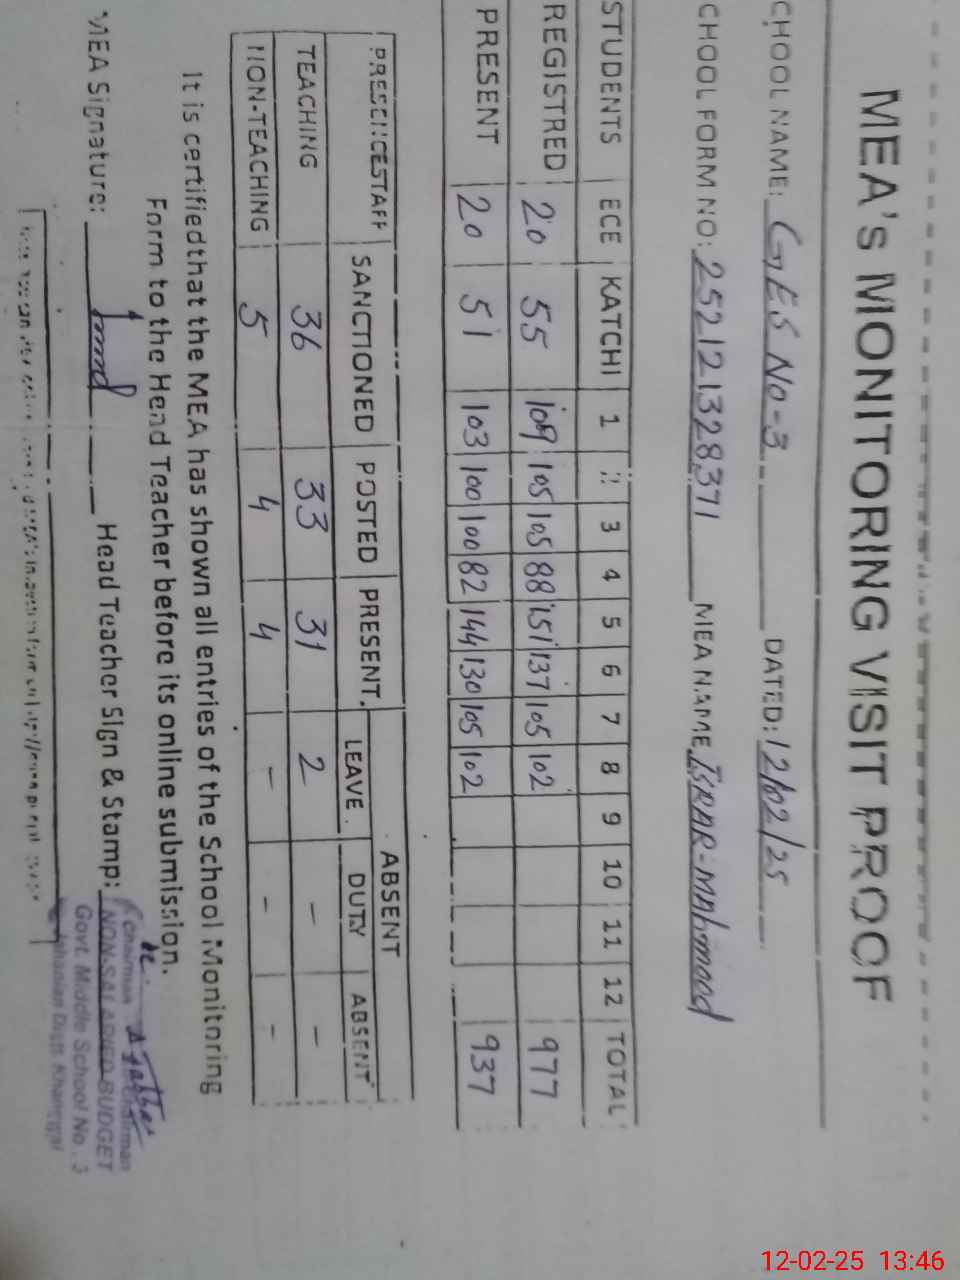 MEA's MONITORING VISIT PROOF
CHOOL NAME: GES No-3 DATED: 12/02/25
CHOOL FORM NO: 25212132837 1 MEA NAME ISRAR-Mahmood
STUDENTS ECE KATCHI 1 3 4 5 6 7 8 9 10 11 12 TOTAL
REGISTRED 20 55 109 105 105 88 151 137 105 102 977
PRESENT 20 51 103 100 100 82 144 130 105 102 937
PRESENCE STAFF SANCTIONED POSTED PRESENT ABSENT
LEAVE DUTY ABSENT
TEACHING 36 33 31 2 - -
NON-TEACHING 5 4 4 - - -
It is certified that the MEA has shown all entries of the School Monitoring
Form to the Head Teacher before its online submission.
MEA Signature: Head Teacher Sign & Stamp:
Chairman
NON-SALARIED BUDGET
Govt. Middle School No. 3
Jahanian Distt. Khanewal
12-02-25 13:46